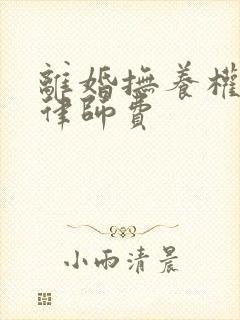 離婚撫養權
律師費
小雨清晨